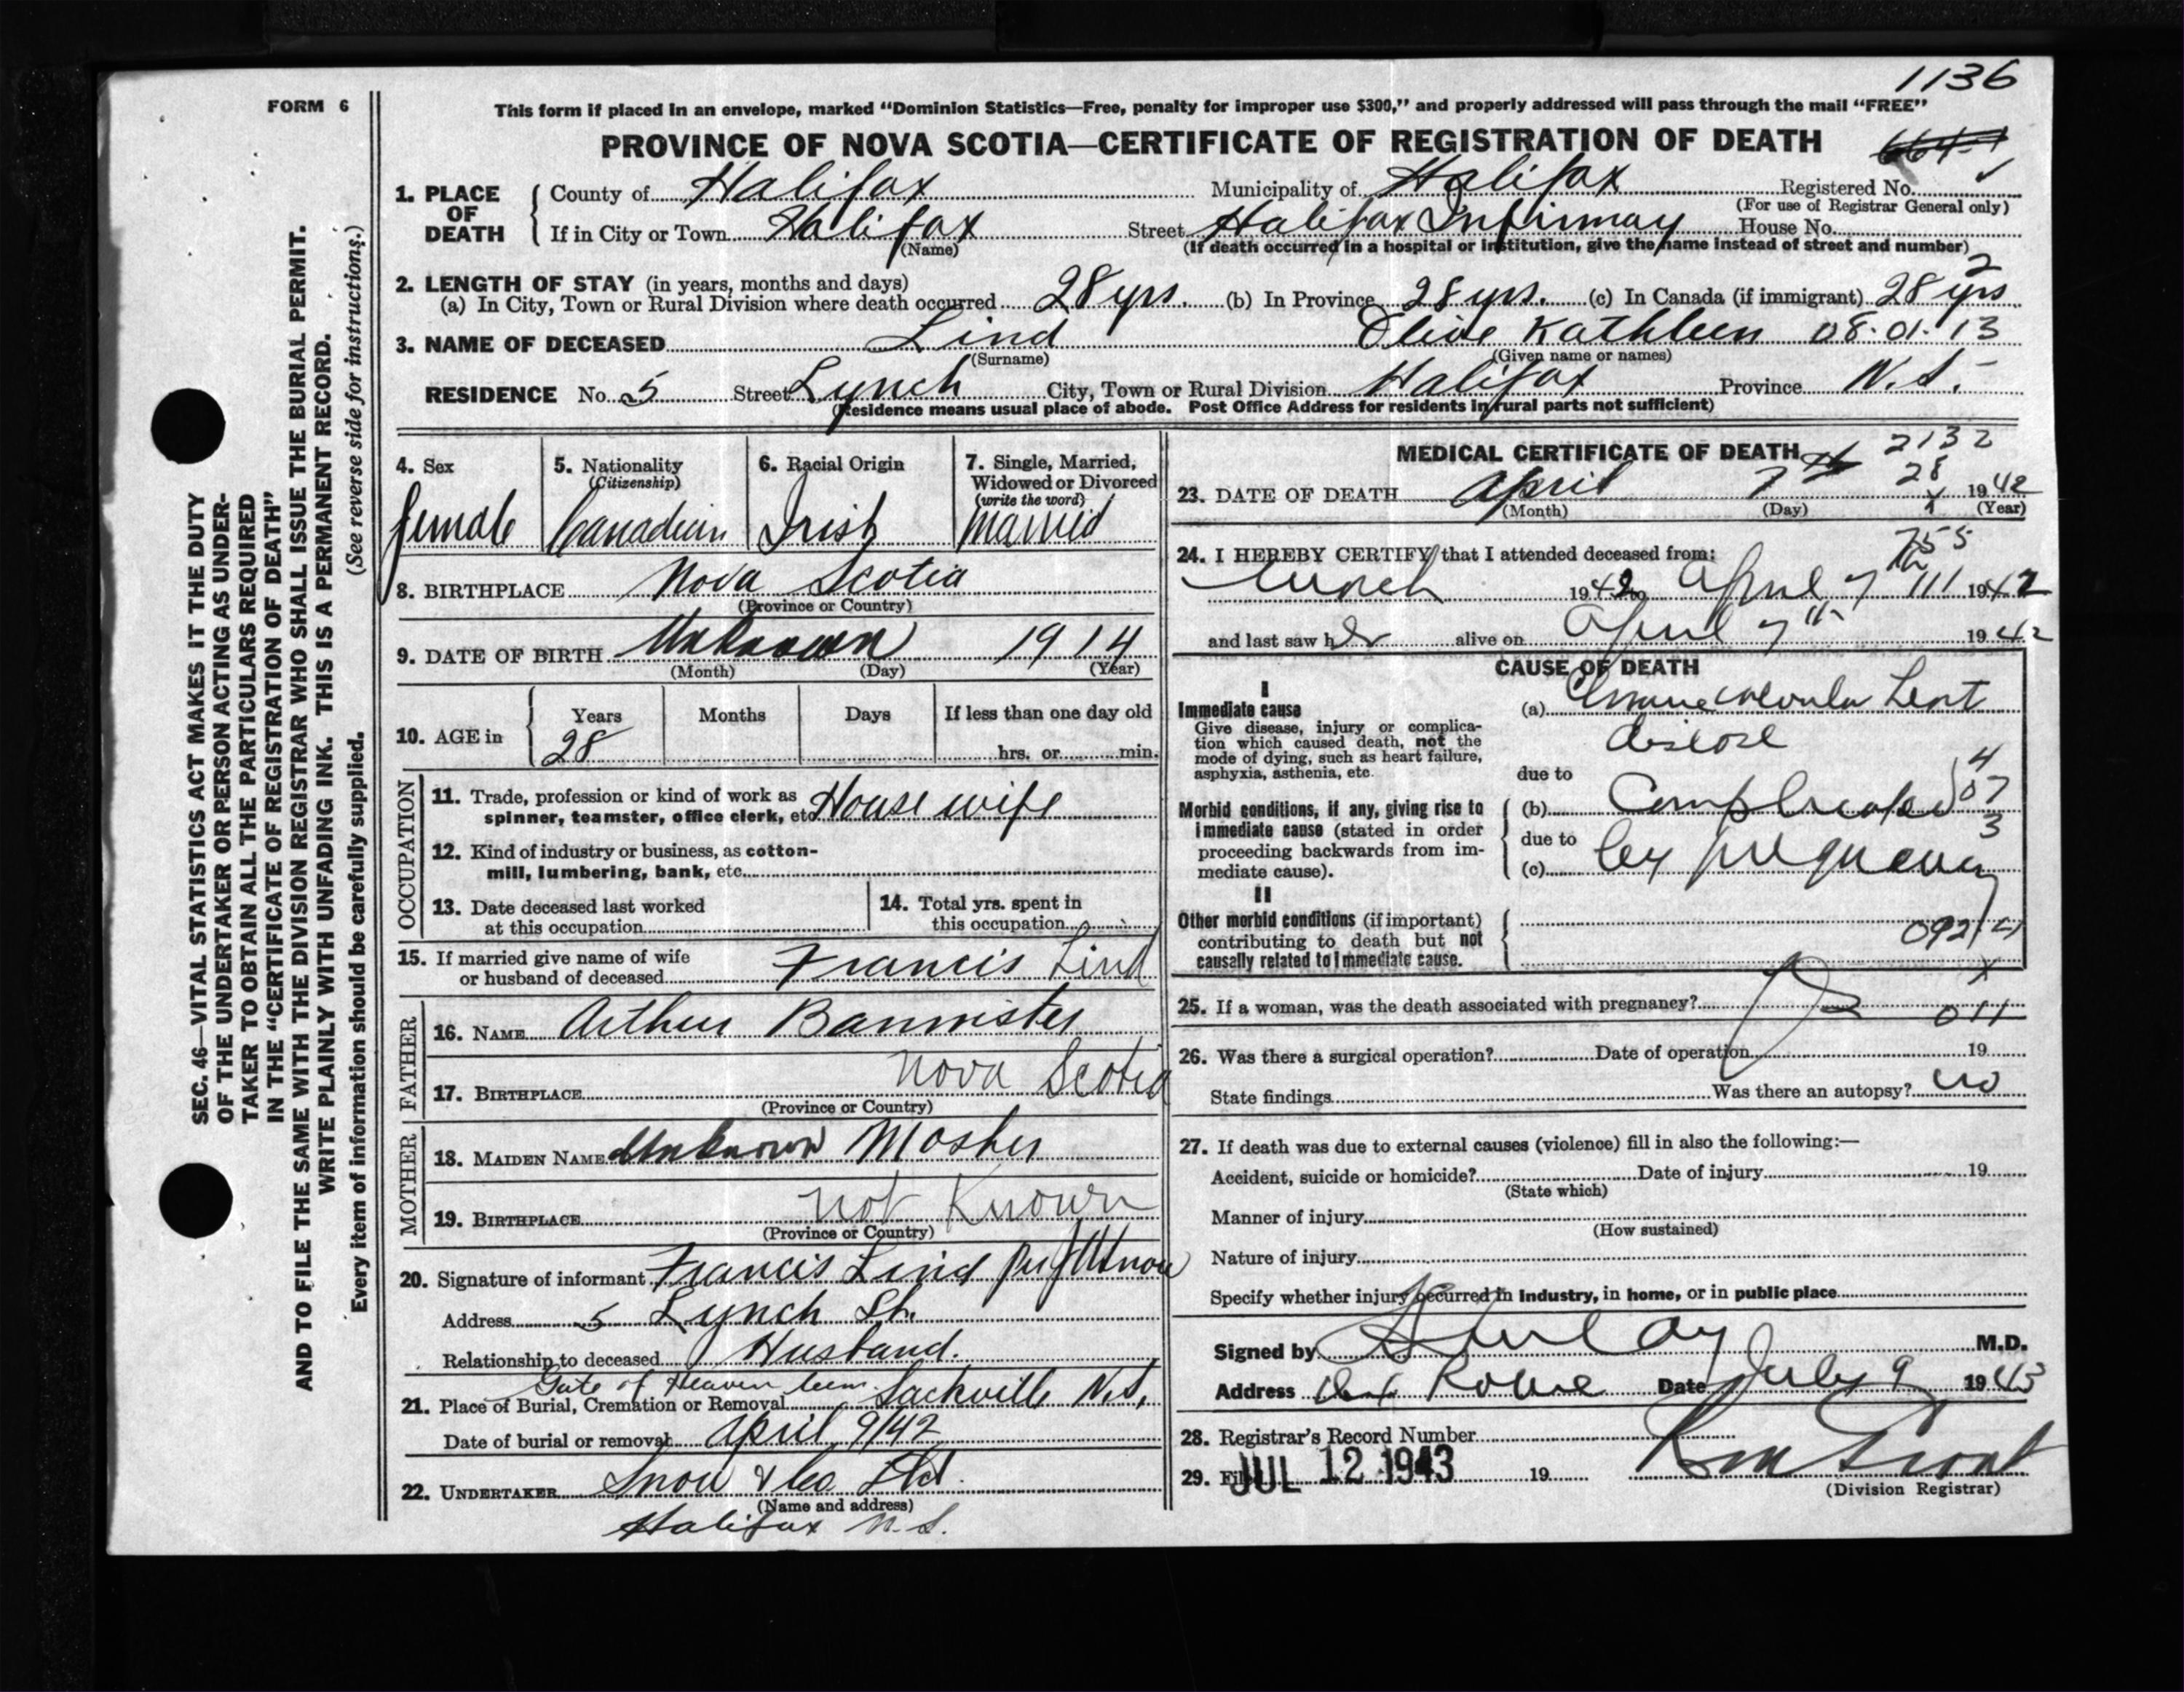 1136
FORM 6
This form if placed in an envelope, marked “Dominion Statistics—Free, penalty for improper use $300,” and properly addressed will pass through the mail “FREE”
PROVINCE OF NOVA SCOTIA—CERTIFICATE OF REGISTRATION OF DEATH
1. PLACE OF DEATH
County of Halifax Municipality of Halifax Registered No.
(For use of Registrar General only)
If in City or Town Halifax Street Halifax Infirmay House No.
(Name) (If death occurred in a hospital or institution, give the name instead of street and number)
2. LENGTH OF STAY (in years, months and days) 2
(a) In City, Town or Rural Division where death occurred 28 yrs. (b) In Province 28 yrs. (c) In Canada (if immigrant) 28 yrs
3. NAME OF DECEASED Lind Olive Kathleen 08-01-13
(Surname) (Given name or names)
RESIDENCE No. 5 Street Lynch City, Town or Rural Division Halifax Province N.S.
(Residence means usual place of abode. Post Office Address for residents in rural parts not sufficient)
SEC. 46—VITAL STATISTICS ACT MAKES IT THE DUTY
OF THE UNDERTAKER OR PERSON ACTING AS UNDER-
TAKER TO OBTAIN ALL THE PARTICULARS REQUIRED
IN THE “CERTIFICATE OF REGISTRATION OF DEATH”
AND TO FILE THE SAME WITH THE DIVISION REGISTRAR WHO SHALL ISSUE THE BURIAL PERMIT.
WRITE PLAINLY WITH UNFADING INK. THIS IS A PERMANENT RECORD.
Every item of information should be carefully supplied. (See reverse side for instructions.)
4. Sex 5. Nationality 6. Racial Origin 7. Single, Married,
(Citizenship) Widowed or Divorced
(write the word)
female Canadian Irish Married
8. BIRTHPLACE Nova Scotia
(Province or Country)
9. DATE OF BIRTH Unknown 1914
(Month) (Day) (Year)
10. AGE in Years Months Days If less than one day old
28 hrs. or min.
OCCUPATION
11. Trade, profession or kind of work as
spinner, teamster, office clerk, etc. Housewife
12. Kind of industry or business, as cotton-
mill, lumbering, bank, etc.
13. Date deceased last worked
at this occupation
14. Total yrs. spent in
this occupation
15. If married give name of wife
or husband of deceased Francis Lind
FATHER
16. NAME Arthur Bannister
17. BIRTHPLACE Nova Scotia
(Province or Country)
MOTHER
18. MAIDEN NAME Unknown Mosher
19. BIRTHPLACE not Known
(Province or Country)
20. Signature of informant Francis Lind per Snow
Address 5 Lynch St.
Relationship to deceased Husband.
Gate of Heaven Cem.
21. Place of Burial, Cremation or Removal Sackville N.S.
Date of burial or removal April 9/42
22. UNDERTAKER Snow & Co Ltd.
(Name and address)
Halifax N.S.
MEDICAL CERTIFICATE OF DEATH 2132
28
23. DATE OF DEATH April 7th 1942
(Month) (Day) (Year)
24. I HEREBY CERTIFY that I attended deceased from:
March 1942 to April 7th 1942
and last saw her alive on April 7th 1942
CAUSE OF DEATH
I
Immediate cause
Give disease, injury or complica-
tion which caused death, not the
mode of dying, such as heart failure,
asphyxia, asthenia, etc.
(a) Heart
disease
due to
Morbid conditions, if any, giving rise to
immediate cause (stated in order
proceeding backwards from im-
mediate cause).
(b) Complicated
due to
(c) by pregnancy
4
07
3
II
Other morbid conditions (if important)
contributing to death but not
causally related to immediate cause.
092
25. If a woman, was the death associated with pregnancy? Yes 011
26. Was there a surgical operation? Date of operation 19
State findings Was there an autopsy? no
27. If death was due to external causes (violence) fill in also the following:—
Accident, suicide or homicide? Date of injury 19
(State which)
Manner of injury
(How sustained)
Nature of injury
Specify whether injury occurred in industry, in home, or in public place
Signed by M.D.
Address Date July 9 1943
28. Registrar's Record Number
29. Filed JUL 12 1943 19
(Division Registrar)